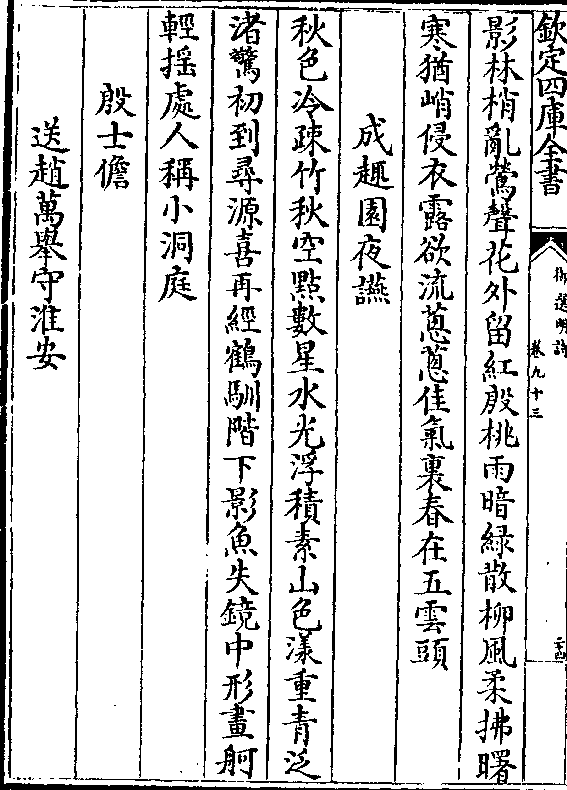 欽定四庫全書
御選明詩
卷九十三
二十四
影林梢亂鶯聲花外留紅殷桃雨暗緑散柳風柔拂曙
寒猶峭侵衣露欲流蔥蔥佳氣裏春在五雲頭
成趣園夜讌
秋色冷疎竹秋空點數星水光浮積素山色漾重青泛
渚驚初到尋源喜再經鶴馴階下影魚失鏡中形畫舸
輕揺處人稱小洞庭
殷士儋
送趙萬舉守淮安